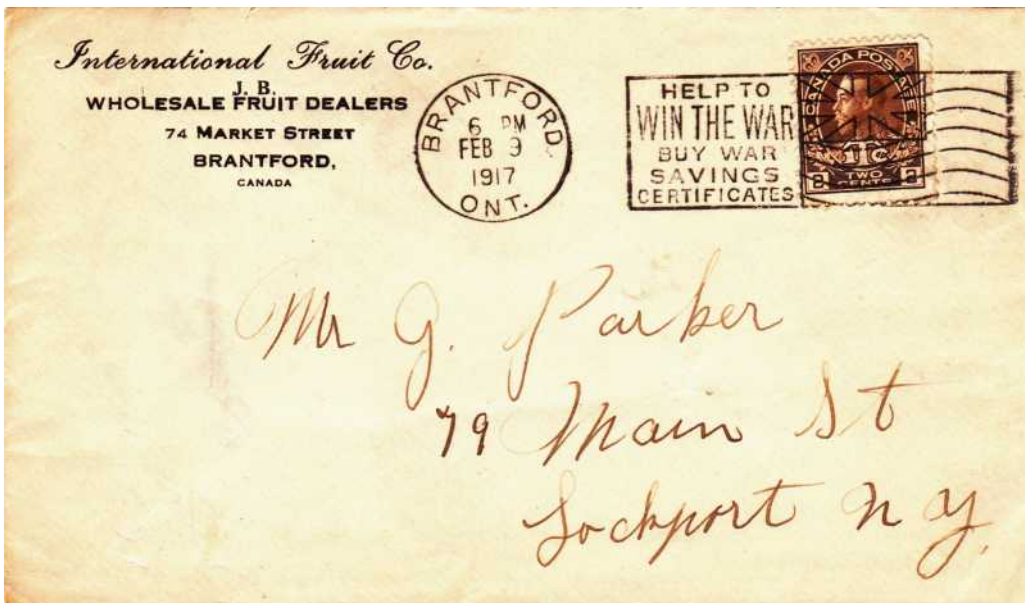 International Fruit Co.
J. B.
WHOLESALE FRUIT DEALERS
74 MARKET STREET
BRANTFORD,
CANADA
BRANTFORD
6 PM
FEB 9
1917
ONT.
HELP TO
WIN THE WAR
BUY WAR
SAVINGS
CERTIFICATES
CANADA POSTAGE
1Tc
2 TWO CENTS 2
Mr G. Parker
79 Main St
Lockport N Y.